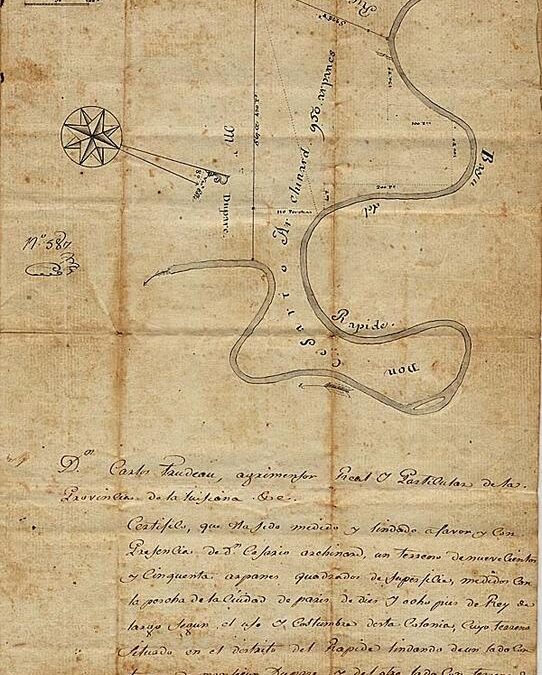 Archinard 950 arpanes
M
Duparc
Bayu
del
Rapido.
Don
Cesario
Nº 587
Dⁿ Carlos Trudeau, agrimensor Real y Particular de la
Provincia de la Luisiana &c.
Certifico, que ha sido medido y lindado a favor y con
Presencia de dⁿ Cesario archinard, un terreno de nuevecientos
y Cinquenta arpanes quadrados de superficie, medidos con
la percha de la Ciudad de paris de dies y ocho pies de Rey de
largo segun el uso y Costumbre desta Colonia, Cuyo terreno
situado en el distrito del Rapide lindando de un lado con
Duparc y del otro lado Con terreno